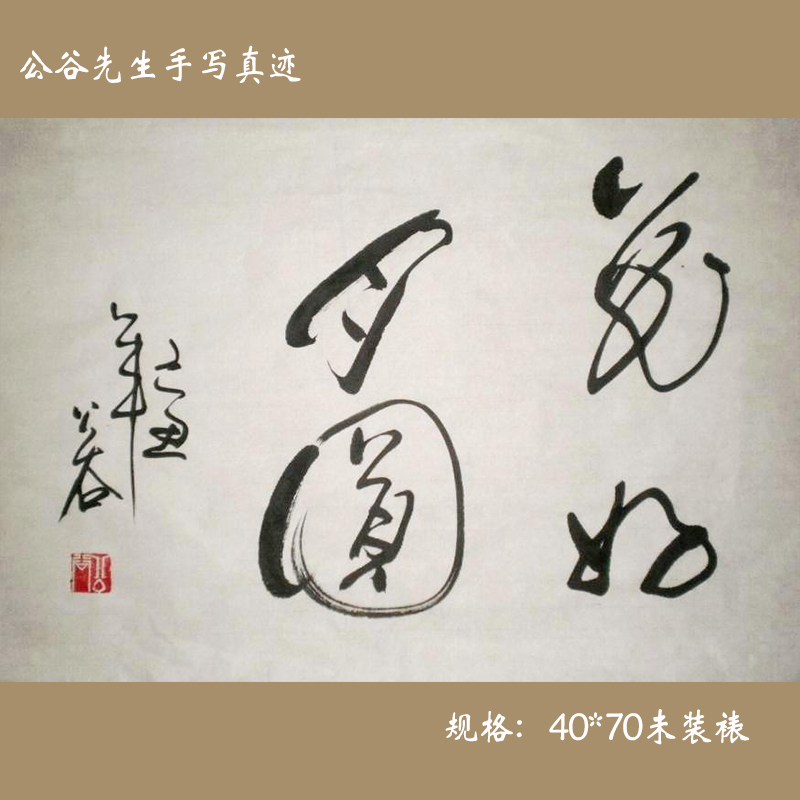 公谷先生手写真迹
花好
月圆
己丑
年
公谷
规格：40*70未装裱